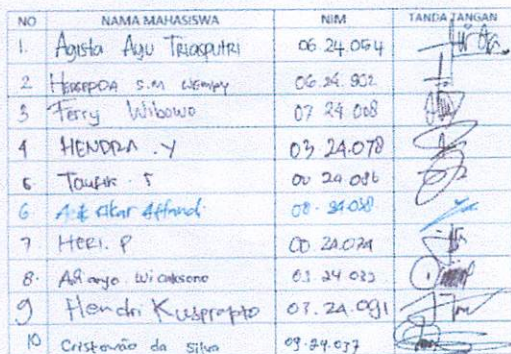 NO NAMA MAHASISWA NIM TANDA TANGAN
1. Agista Ayu Triasputri 06.24.054
2 S.M 06.24.902
3 Ferry Wibowo 07 24 008
4 HENDRA . Y 03 24.078
5 Taufik . S 00 24 086
6. Affandi 08. 24.038
7 HERI. P 00 24.024
8. Wicaksono 03 24 039
9 Hendri Kusprapto 03.24.091
10 Cristovão da Silva 09.24.037